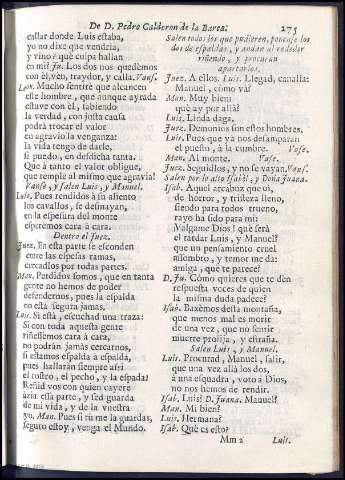 De D. Pedro Calderon de la Barca. 275
callar donde Luis estaba,
yo no dixe que vendria,
y vino? què culpa hallan
en mi? Ju. Los dos nos quedèmos
con èl, vèn, traydor, y calla. Vanse.
Luis. Mucho sentirè que alcancen
este hombre, que aunque ayrada
estuve con èl, sabiendo
la verdad, con justa causa
podrà trocar el valor
en agravio la venganza:
la vida tengo de darle,
si puedo, en desdicha tanta.
Que à tanto el valor obligue,
que temple al mismo que agravia!
Vanse, y salen Luis, y Manuel.
Luis. Pues rendidos à su aliento
los cavallos, se desmayan,
en la espesura del monte
esperèmos cara à cara.
Dentro el Juez.
Juez. En esta parte se esconden
entre las espesas ramas,
cercadlos por todas partes.
Man. Perdidos somos, que en tanta
gente no hemos de poder
defendernos, pues la espalda
no està segura jamàs.
Luis. Si està, escuchad una traza:
Si con toda aquesta gente
riñessemos cara à cara,
no podràn jamàs cercarnos,
si estamos espalda à espalda,
pues hallaràn siempre assi
el rostro, el pecho, y la espada?
Reñid vos con quien cayere
àzia esta parte, y sed guarda
de mi vida, y de la vuestra
yo. Man. Pues si tu me la guardas,
seguro estoy, venga el Mundo.
Salen todos los que pudieren, ponense los
dos de espaldas, y andan al rededor
riñendo, y procuran
apartarlos.
Juez. A ellos. Luis. Llegad, canalla:
Manuel, còmo và?
Man. Muy bien:
què ay por allà?
Luis. Linda daga.
Juez. Demonios son estos hombres.
Luis. Pues que yà nos desamparan
el puesto, à la cumbre. Vase.
Man. Al monte. Vase.
Juez. Seguidlos, y no se vayan. Vanse.
Salen por lo alto Isabèl, y Doña Juana.
Isab. Aquel arcabuz que ùì,
de horror, y tristeza lleno,
siendo para todos trueno,
rayo ha sido para mi:
Valgame Dios! què serà
el tardar Luis, y Manuel?
que un pensamiento cruel
miembro, y temor me dà:
amiga, què te parece?
D. Ju. Còmo quieres que te dèn
respuesta voces de quien
la misma duda padece?
Isab. Baxèmos desta montaña,
que menos mal es morir
de una vez, que no sentir
muerte prolija, y estraña.
Salen Luis, y Manuel.
Luis. Procurad, Manuel, salir,
que una vez allà los dos,
à una esquadra, voto à Dios,
no nos hemos de rendir.
Isab. Luis? D. Juana. Manuel?
Man. Mi bien?
Luis. Hermana?
Isab. Què es esto?
Mm 2 Luis.